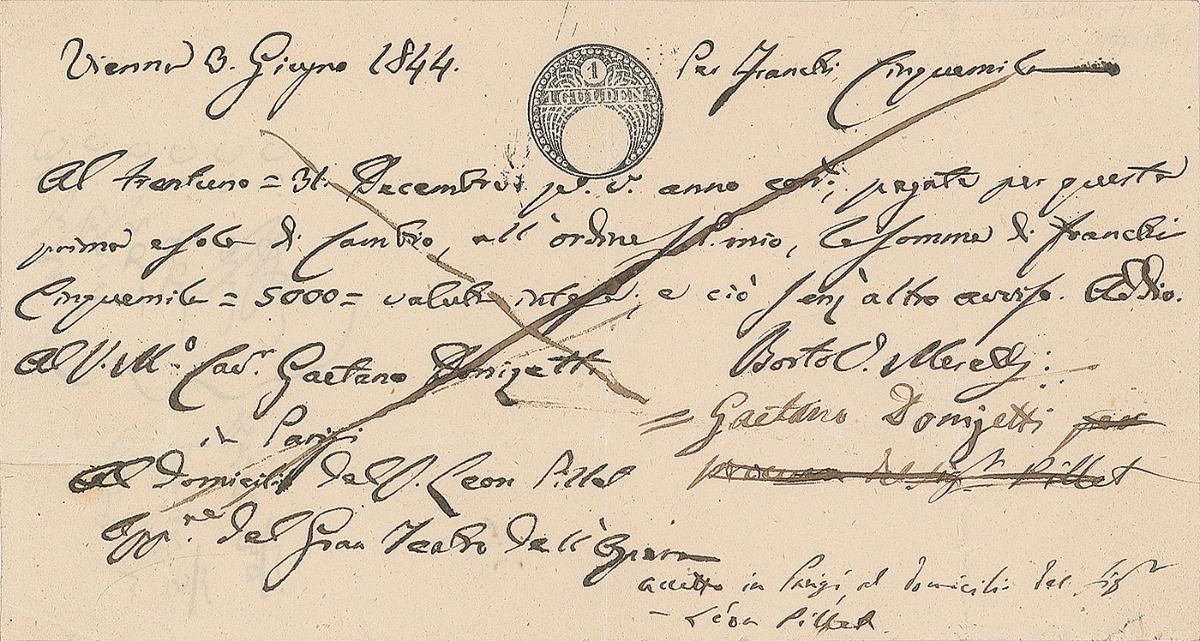 Vienna 3. Giugno 1844.
1
1 GULDEN
Per Franchi Cinquemila
Al trentuno = 31. Decembre pr. v. anno corr.; pagate per questa
prima e sola di Cambio, all'ordine S. mio, la somma di franchi
Cinquemila = 5000 = valuta intesa; e ciò senz'altro avviso. Addio.
Al S. M.o Cavr. Gaetano Donizetti
Bortol. Merelli:
in Parigi
= Gaetano Donizetti per
Al domicilio del S. Leon Pillet
del sigr Pillet
del Gran Teatro dell'Opera
accetto in Parigi, al domicilio del sigr
- Léon Pillet